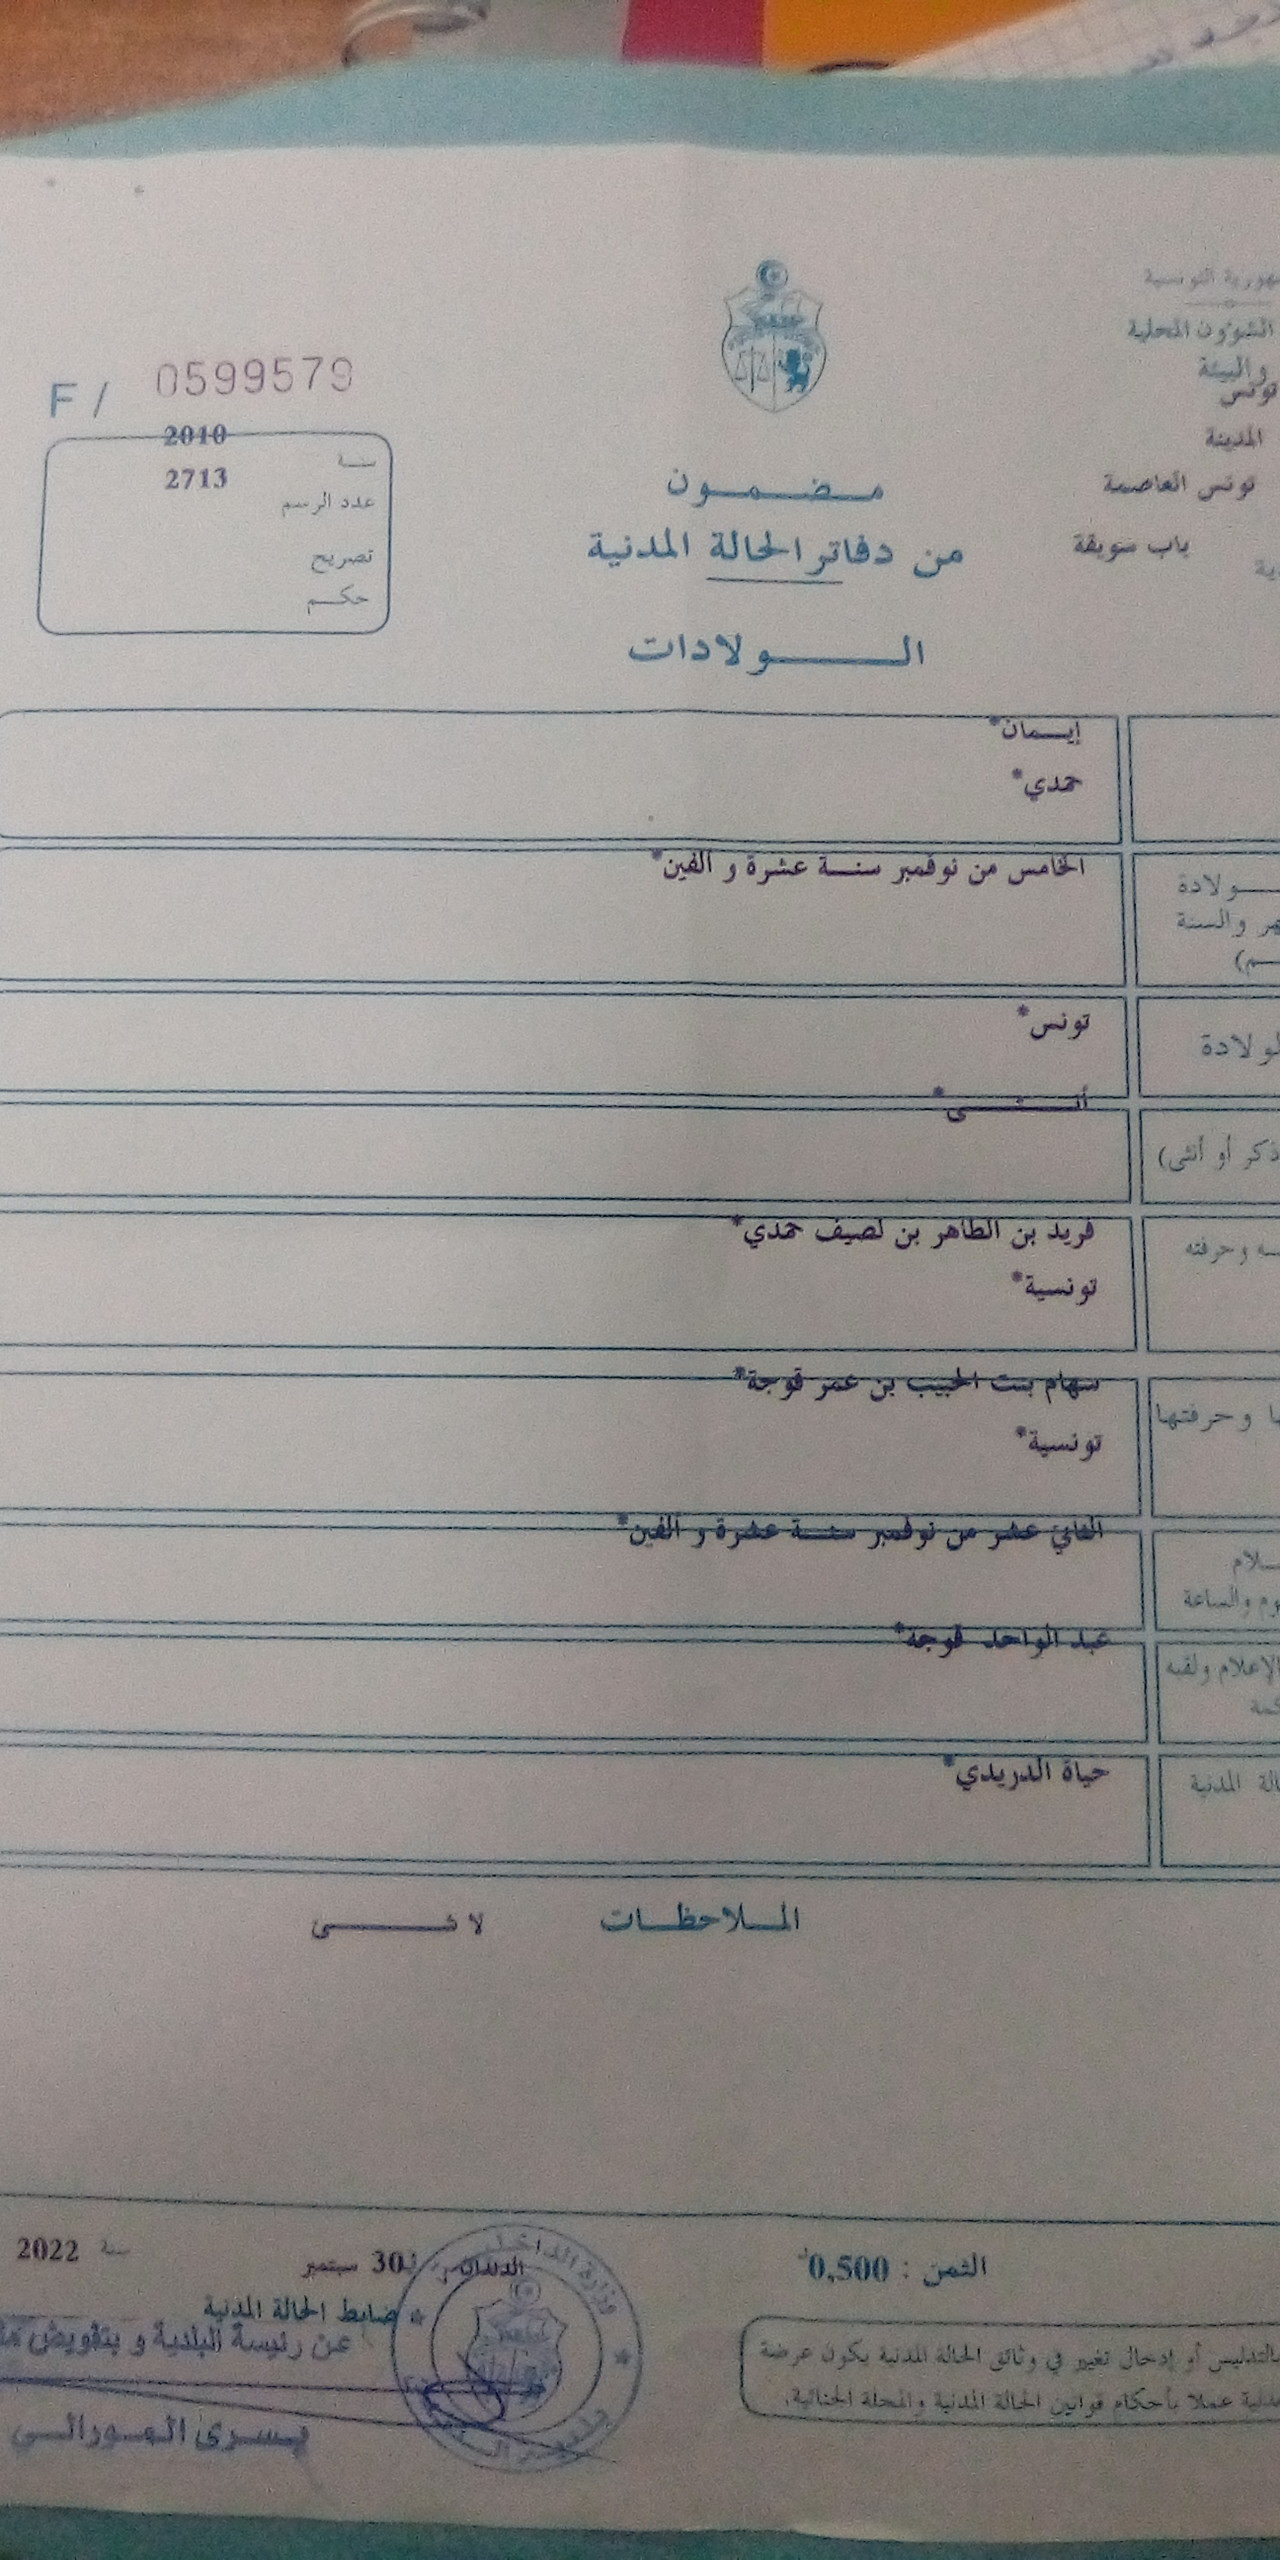 الشؤون المحلية
والبيئة
تونس
المدينة
تونس العاصمة
باب سويقة
F / 0599579
سنة 2010
عدد الرسم 2713
تصريح
حكم
مضمون
من دفاتر الحالة المدنية
الولادات
إيمان*
حمدي*
الخامس من نوفمبر سنة عشرة و ألفين*
والسنة
تونس*
أنثى*
ذكر أو أنثى)
فريد بن الطاهر بن لصيف حمدي*
وحرفته
تونسية*
سهام بنت الحبيب بن عمر قوجة*
وحرفتها
تونسية*
الثاني عشر من نوفمبر سنة عشرة و ألفين*
والساعة
عبد الواحد قوجة*
الإعلام ولقبه
حياة الدريدي*
المدنية
الملاحظات لا شى
الثمن : 0,500د
30 سبتمبر سنة 2022
ضابط الحالة المدنية
عن رئيسة البلدية و بتفويض
أو إدخال تغيير في وثائق الحالة المدنية يكون عرضة
عملا بأحكام قوانين الحالة المدنية والمجلة الجنائية.
وزارة الداخلية